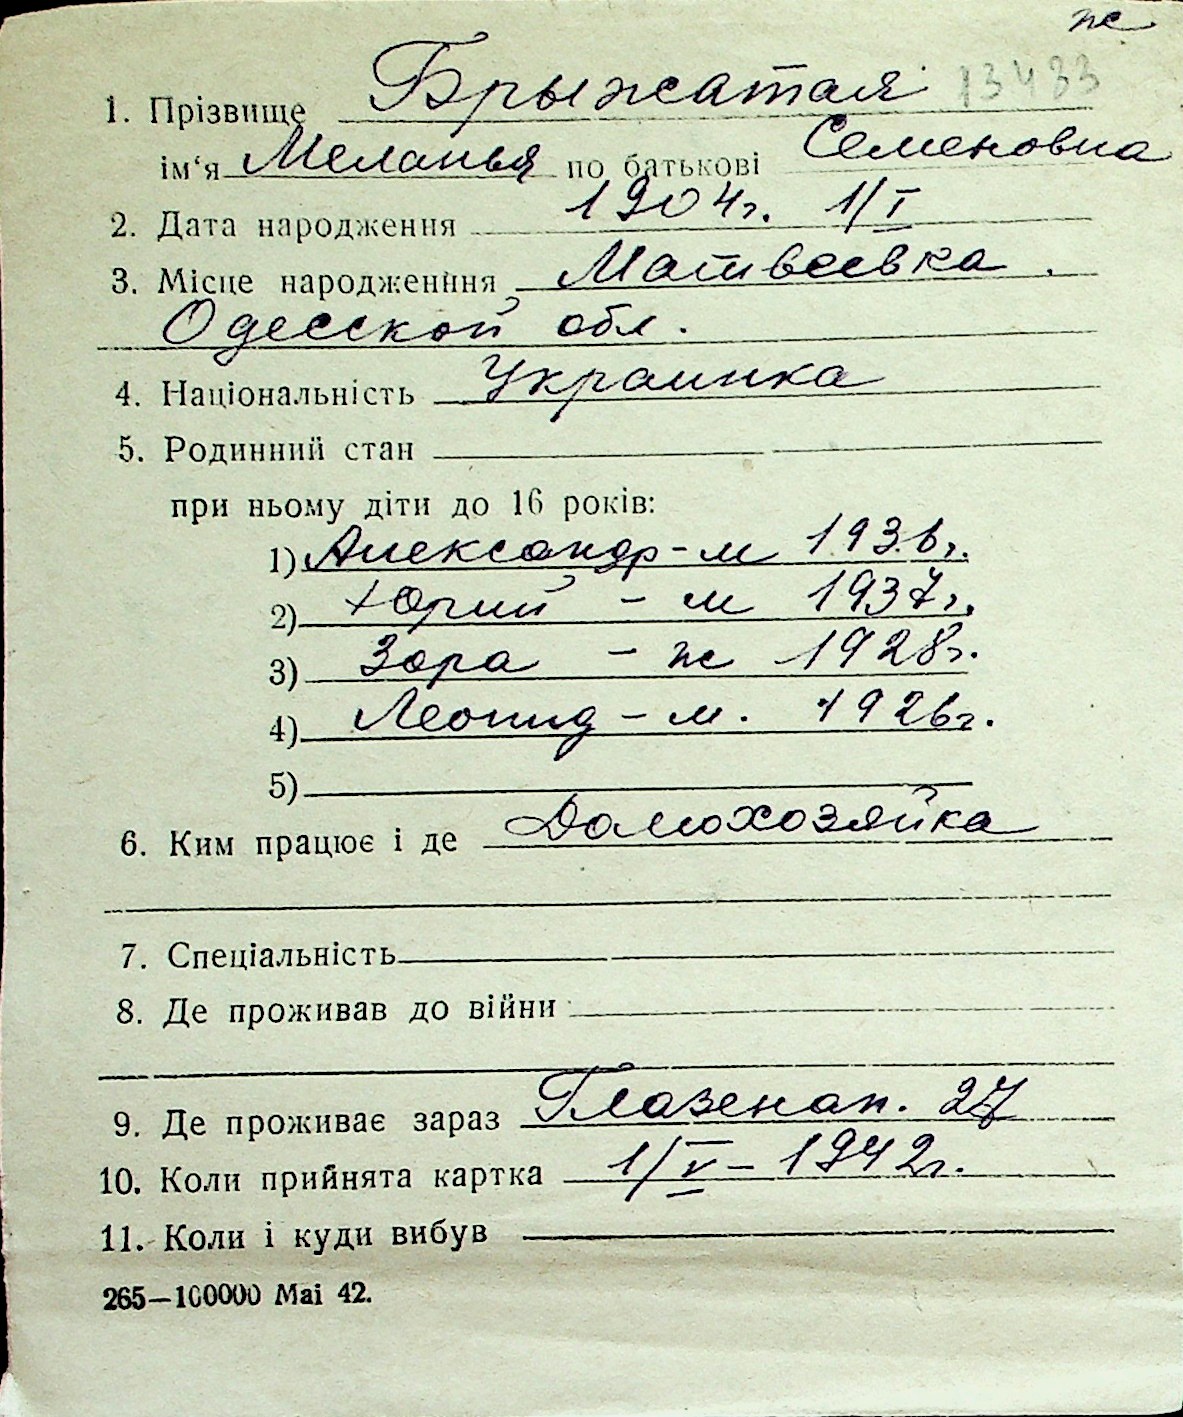 ж
1. Прізвище Брыжатая 13433
ім‘я Меланья по батькові Семеновна
2. Дата народження 1904г. 1/I
3. Місце народження Матвеевка.
Одесской обл.
4. Національність Украинка
5. Родинний стан
при ньому діти до 16 років:
1) Александр - м 1936г.
2) Юрий - м 1937г.
3) Зора - ж 1928г.
4) Леонид - м. 1926г.
5)
6. Ким працює і де Домохозяйка
7. Спеціальність
8. Де проживав до війни
9. Де проживає зараз Глазенап. 27
10. Коли прийнята картка 1/V - 1942г.
11. Коли і куди вибув
265—100000 Mai 42.